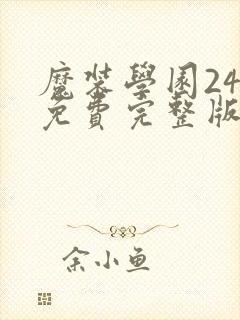 魔装學園24
免費完整版
余小鱼